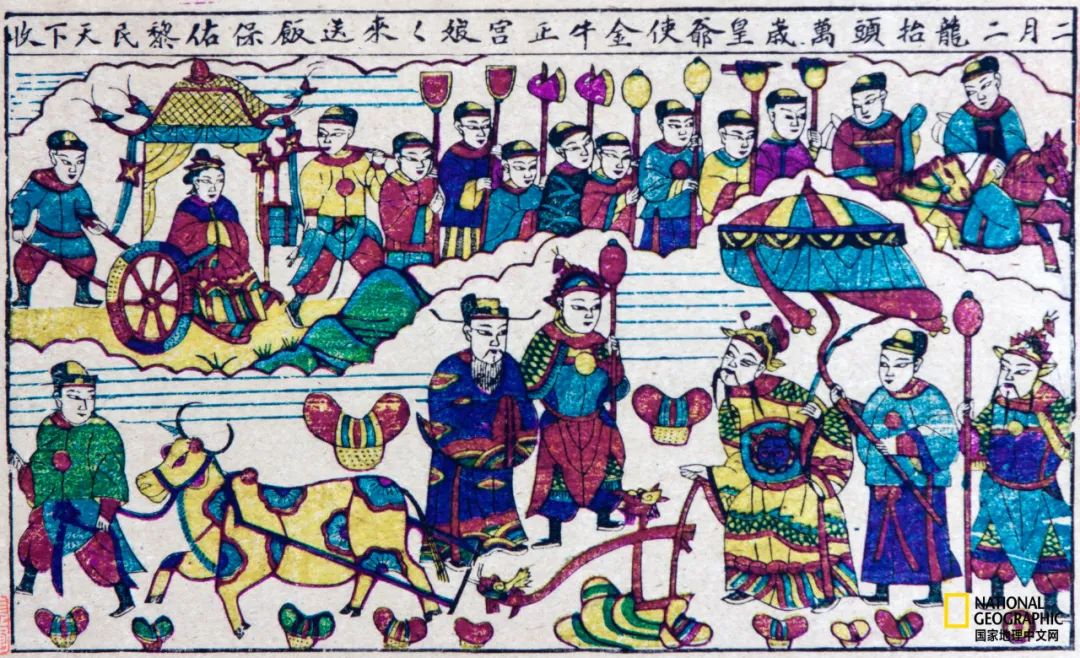 二月二龍抬頭萬歲皇爺使金牛正宮娘〱來送飯保佑黎民天下收
NATIONAL
GEOGRAPHIC
国家地理中文网